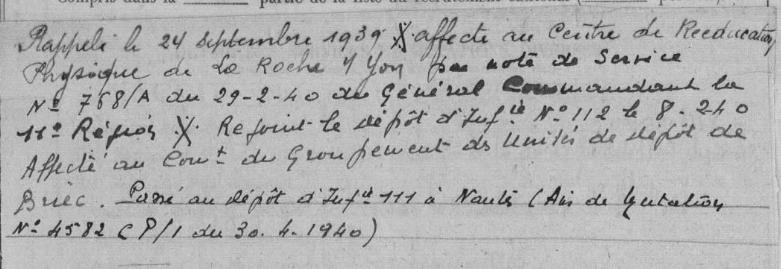 Compris dans la ______ partie de la liste du recrutement cantonal (
Rappelé le 24 septembre 1939 X affecté au Centre de Reeducation
Physique de La Roche s/ Yon par note de Service
No 768/A du 29-2-40 du Général Commandant la
11e Région X. Rejoint le dépôt d'Infie No 112 le 8-2 40
Affecté au Comt du Groupement des Unités de dépôt de
Briec. Passé au dépôt d'Infie 111 à Nantes (Avis de Mutation
No 4582 C P/1 du 30.4.1940)